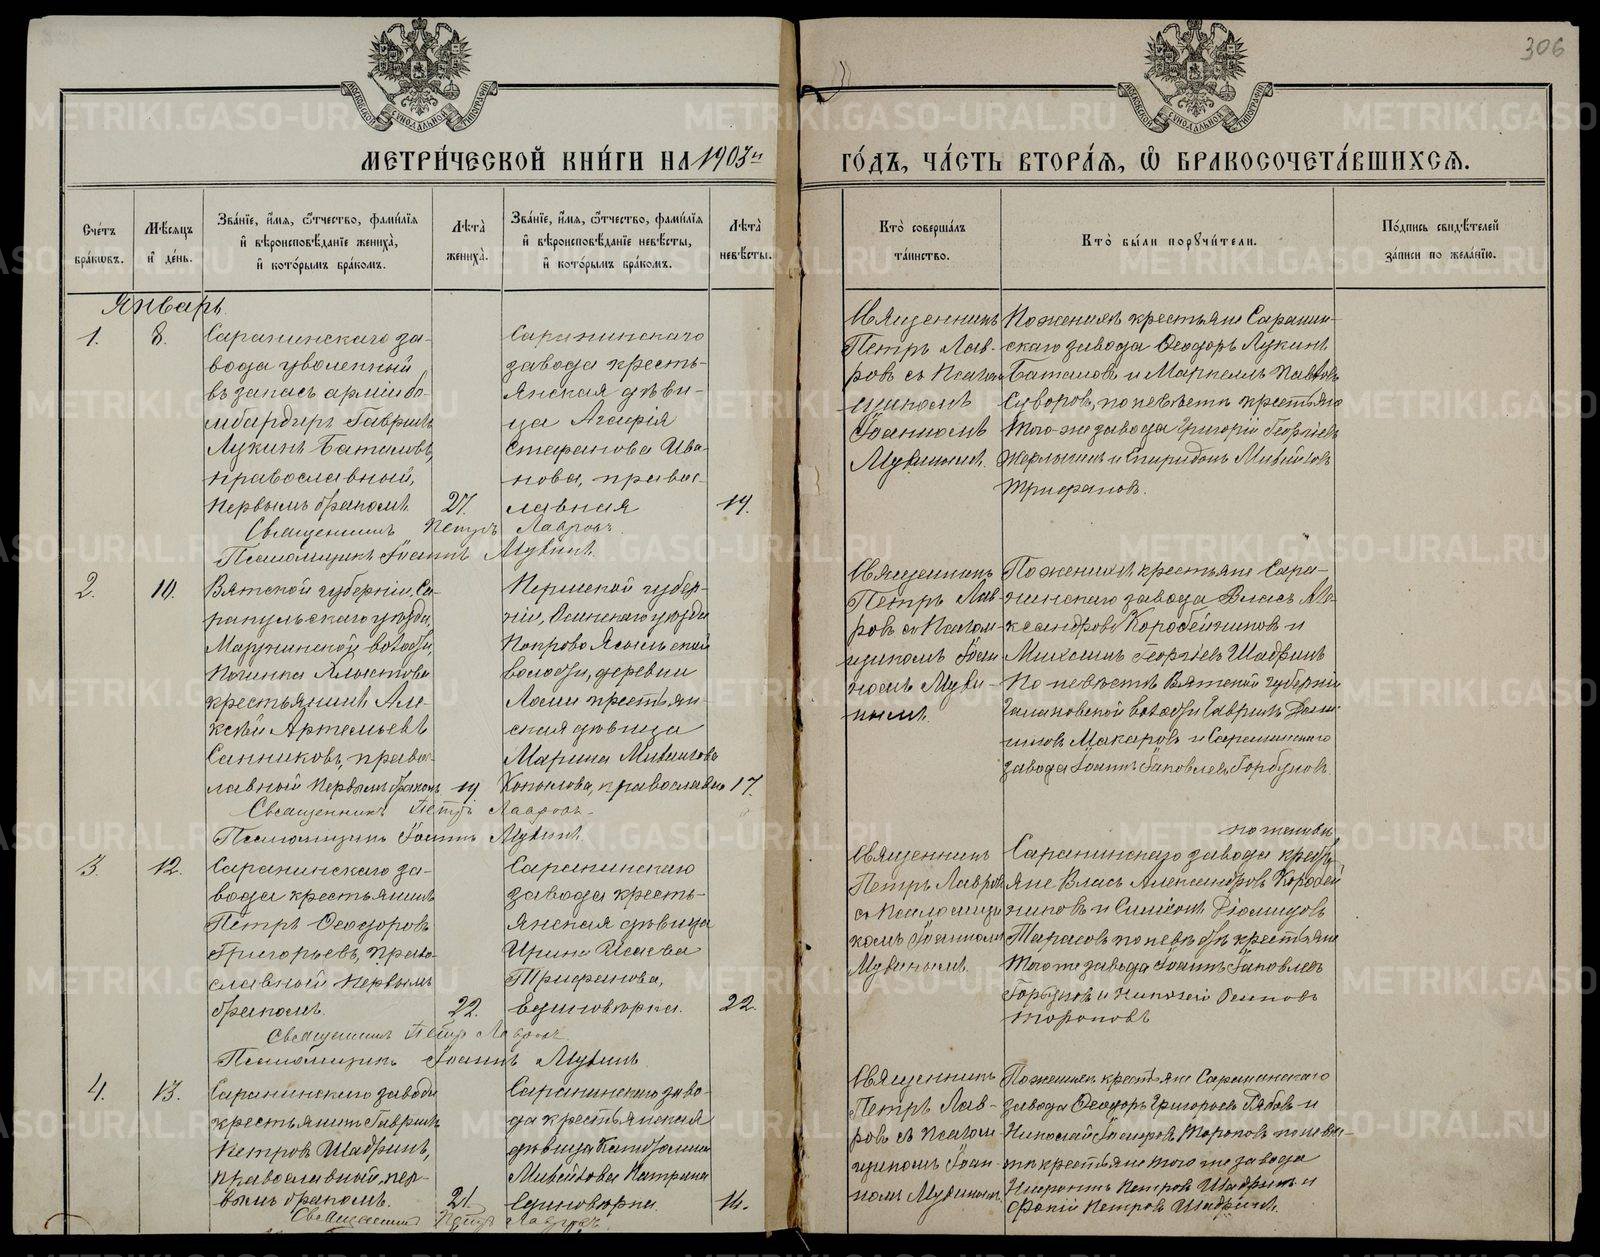 306
МОСКОВСКОЙ СИНОДАЛЬНОЙ ТИПОГРАФІИ
МОСКОВСКОЙ СИНОДАЛЬНОЙ ТИПОГРАФІИ
МЕТРИ́ЧЕСКОЙ КНИ́ГИ НА 1903й
ГО́ДЪ, ЧА́СТЬ ВТОРА́Ѧ, Ѽ БРАКОСОЧЕТА́ВШИХСѦ.
Сче́тъ бра́кѡвъ.
Мѣ́сѧцъ и҆ де́нь.
Зва́нїе, и҆́мѧ, ѻ҆́тчество, фами́лїѧ
и҆ вѣроисповѣ́данїе жениха̀,
и҆ кото́рымъ бра́комъ.
Лѣ́та жениха̀.
Зва́нїе, и҆́мѧ, ѻ҆́тчество, фами́лїѧ
и҆ вѣроисповѣ́данїе невѣ́сты,
и҆ кото́рымъ бра́комъ.
Лѣ́та невѣ́сты.
Кто̀ соверша́лъ та́инство.
Кто̀ бы́ли поручи́тели.
По́дпись свидѣ́телей за́писи по жела́нїю.
Январь.
1.
8.
Саранинскаго за-
вода уволенный
въ запасъ арміи бо-
мбардиръ Гавріилъ
Лукинъ Баталовъ,
православный,
первымъ бракомъ.
27.
Саранинскаго
завода кресть-
янская дѣви-
ца Агафія
Стефанова Ива-
нова, правос-
лавная
19.
Священникъ
Петръ Лав-
ровъ съ Псалом-
щикомъ
Іоанномъ
По женихѣ крестьяне Саранин-
скаго завода Ѳеодоръ Лукинъ
Баталовъ и Маркеллъ Павловъ
Суворовъ, по невѣстѣ крестьяне
того же завода Григорій Георгіевъ
и Спиридонъ
Трифановъ.
Священникъ Петръ Лавровъ
Псаломщикъ Іоаннъ
2.
10.
Вятской губерніи, Са-
рапульскаго уѣзда,
волости,
Починка
крестьянинъ Але-
ксѣй Артемьевъ
Санниковъ, право-
славный первымъ бракомъ
19
Пермской губер-
ніи, Осинскаго уѣзда
Покрово-Ясыльской
волости, деревни
крестьян-
ская дѣвица
Марина
Копылова, православная
17.
Священникъ
Петръ Лав-
ровъ съ Псалом-
щикомъ Іоан-
номъ
По женихѣ крестьяне Сара-
нинскаго завода Власъ Але-
ксандровъ Коробейниковъ и
Михаилъ Георгіевъ Шадринъ
По невѣстѣ Вятской губерніи
волости Гавріилъ
Макаровъ и Саранинскаго
завода Іоаннъ Іаковлевъ Горбуновъ.
Священникъ Петръ Лавровъ
Псаломщикъ Іоаннъ
3.
12.
Саранинскаго за-
вода крестьянинъ
Петръ Ѳеодоровъ
Григорьевъ, право-
славный первымъ
бракомъ.
22.
Саранинскаго
завода кресть-
янская дѣвица
Ирина Исаева
Трифанова,
единовѣрка.
22.
Священникъ
Петръ Лавровъ
съ Псаломщи-
комъ Іоанномъ
по женихѣ
Саранинскаго завода кресть-
яне Власъ Александровъ Коробей-
никовъ и Симеонъ Діомидовъ
Тарасовъ по невѣстѣ крестьяне
того же завода Іоаннъ Іаковлевъ
Горбуновъ и Николай
Тороповъ
Священникъ Петръ Лавровъ
Псаломщикъ Іоаннъ
4.
13.
Саранинскаго завода
крестьянинъ Гавріилъ
Петровъ Шадринъ,
православный, пер-
вымъ бракомъ.
21.
Саранинскаго заво-
да крестьянская
дѣвица
единовѣрка.
Священникъ
Петръ Лав-
ровъ съ Псалом-
щикомъ Іоан-
номъ
По женихѣ крестьяне Саранинскаго
завода Ѳеодоръ Григорьевъ и
Николай Тороповъ по невѣс-
тѣ крестьяне того же завода
Петровъ Шадринъ и
Петровъ Шадринъ.
Священникъ Петръ Лавровъ
METRIKI.GASO-URAL.RU